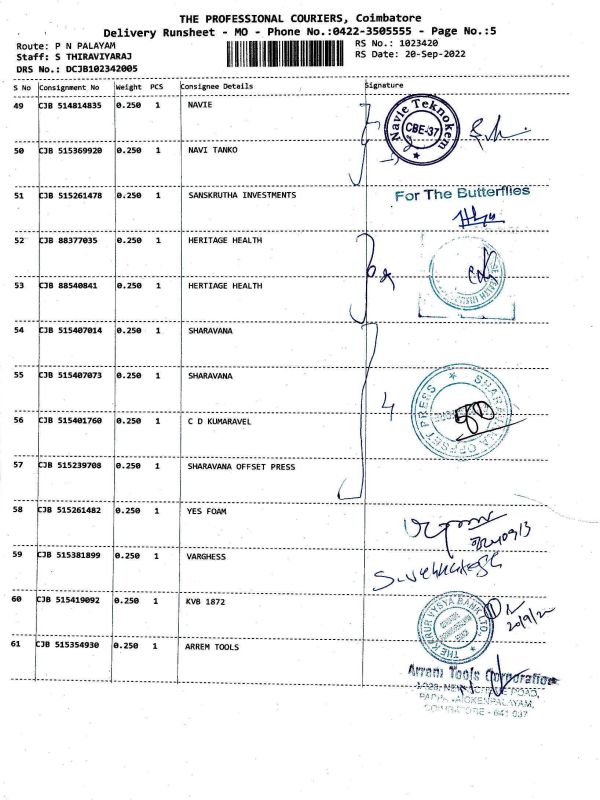 THE PROFESSIONAL COURIERS, Coimbatore
Delivery Runsheet - MO - Phone No.:0422-3505555 - Page No.:5
Route: P N PALAYAM
Staff: S THIRAVIYARAJ
DRS No.: DCJB102342005
RS No.: 1023420
RS Date: 20-Sep-2022
S No Consignment No Weight PCS Consignee Details Signature
49 CJB 514814835 0.250 1 NAVIE
Navie Teknokem
CBE-37
50 CJB 515369920 0.250 1 NAVI TANKO
51 CJB 515261478 0.250 1 SANSKRUTHA INVESTMENTS
For The Butterflies
52 CJB 88377035 0.250 1 HERITAGE HEALTH
53 CJB 88540841 0.250 1 HERTIAGE HEALTH
54 CJB 515407014 0.250 1 SHARAVANA
55 CJB 515407073 0.250 1 SHARAVANA
4
SHARAVANA OFFSET PRESS
56 CJB 515401760 0.250 1 C D KUMARAVEL
57 CJB 515239708 0.250 1 SHARAVANA OFFSET PRESS
58 CJB 515261482 0.250 1 YES FOAM
59 CJB 515381899 0.250 1 VARGHESS
60 CJB 515419092 0.250 1 KVB 1872
THE KARUR VYSYA BANK LTD.
20/9/22
61 CJB 515354930 0.250 1 ARREM TOOLS
Arrem Tools Corporation
COIMBATORE - 641 037